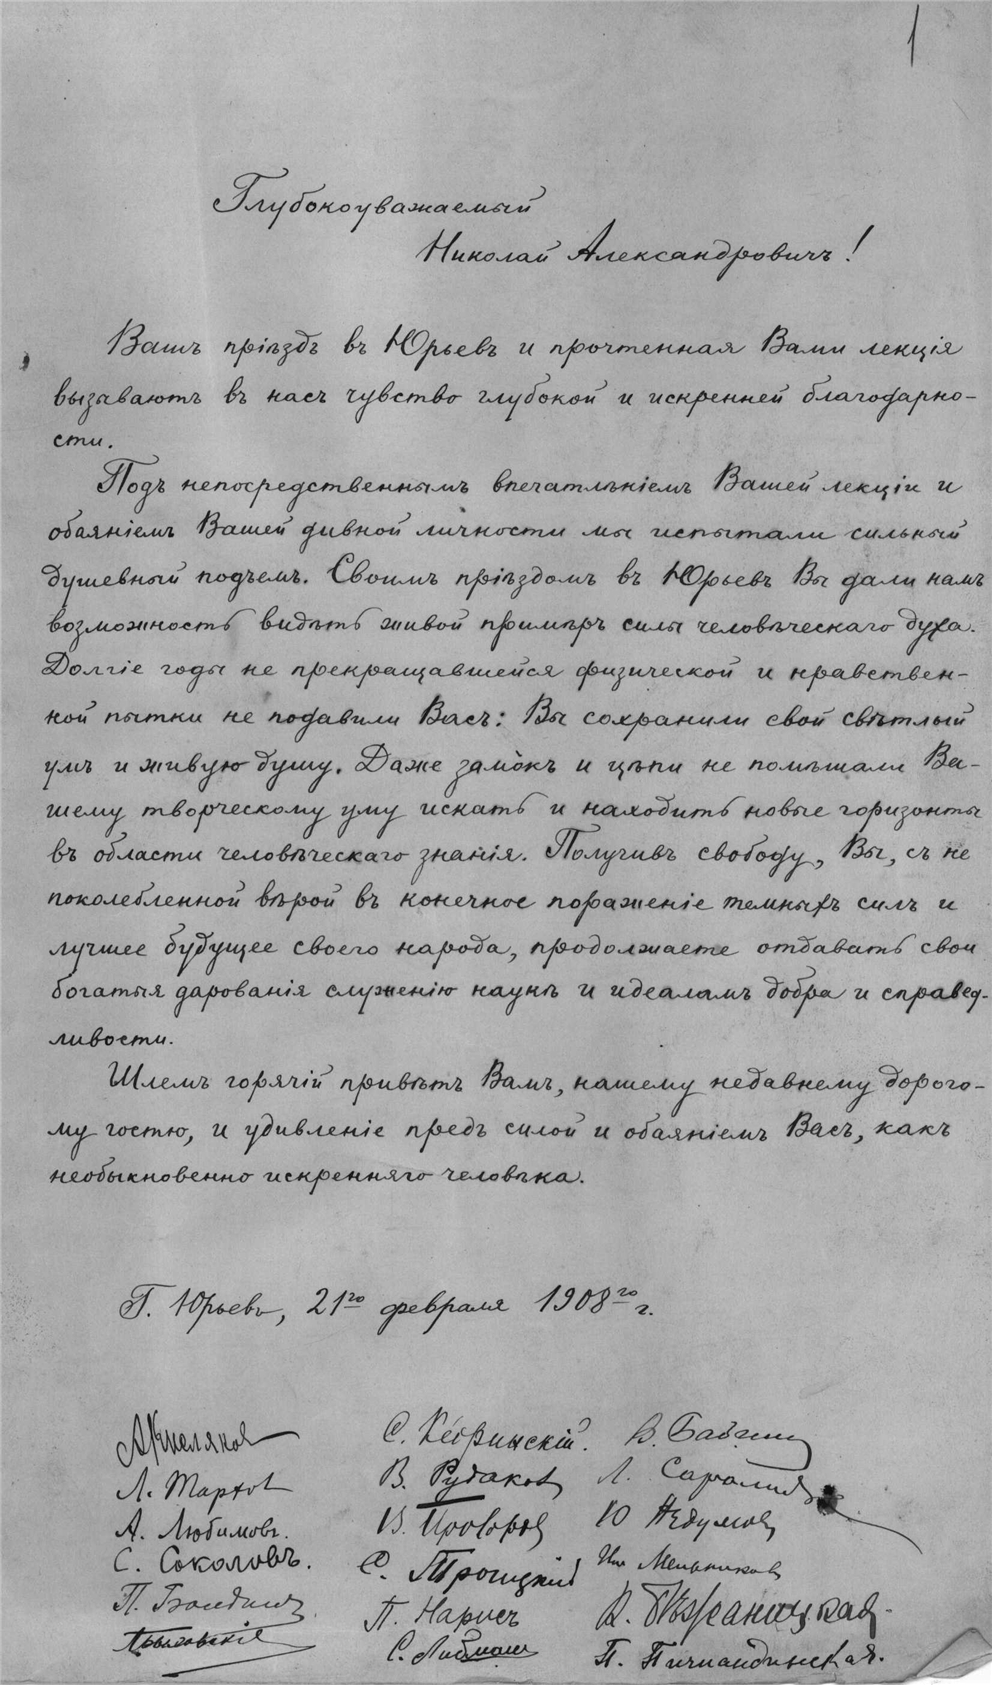 1
Глубокоуважаемый
Николай Александровичъ!
Вашъ пріѣздъ въ Юрьевъ и прочтенная Вами лекція
вызываютъ въ насъ чувство глубокой и искренней благодарно-
сти.
Подъ непосредственнымъ впечатлѣніемъ Вашей лекціи и
обаяніемъ Вашей дивной личности мы испытали сильный
душевный подъемъ. Своимъ пріѣздомъ въ Юрьевъ Вы дали намъ
возможность видѣть живой примѣръ силы человѣческаго духа.
Долгіе годы не прекращавшейся физической и нравствен-
ной пытки не подавили Васъ: Вы сохранили свой свѣтлый
умъ и живую душу. Даже замокъ и цѣпи не помѣшали Ва-
шему творческому уму искать и находить новые горизонты
въ области человѣческаго знанія. Получивъ свободу, Вы, съ не
поколебленной вѣрой въ конечное пораженіе темныхъ силъ и
лучшее будущее своего народа, продолжаете отдавать свои
богатыя дарованія служенію наукѣ и идеаламъ добра и справед-
ливости.
Шлемъ горячій привѣтъ Вамъ, нашему недавнему дорого-
му гостю, и удивленіе предъ силой и обаяніемъ Васъ, какъ
необыкновенно искренняго человѣка.
Г. Юрьевъ, 21го февраля 1908го г.
С. В.
Л. В. Рудаковъ Л.
А. Любимовъ. В. Ю
С. Соколовъ. С. Троицкій Мельниковъ
П. П. В.
С. П.